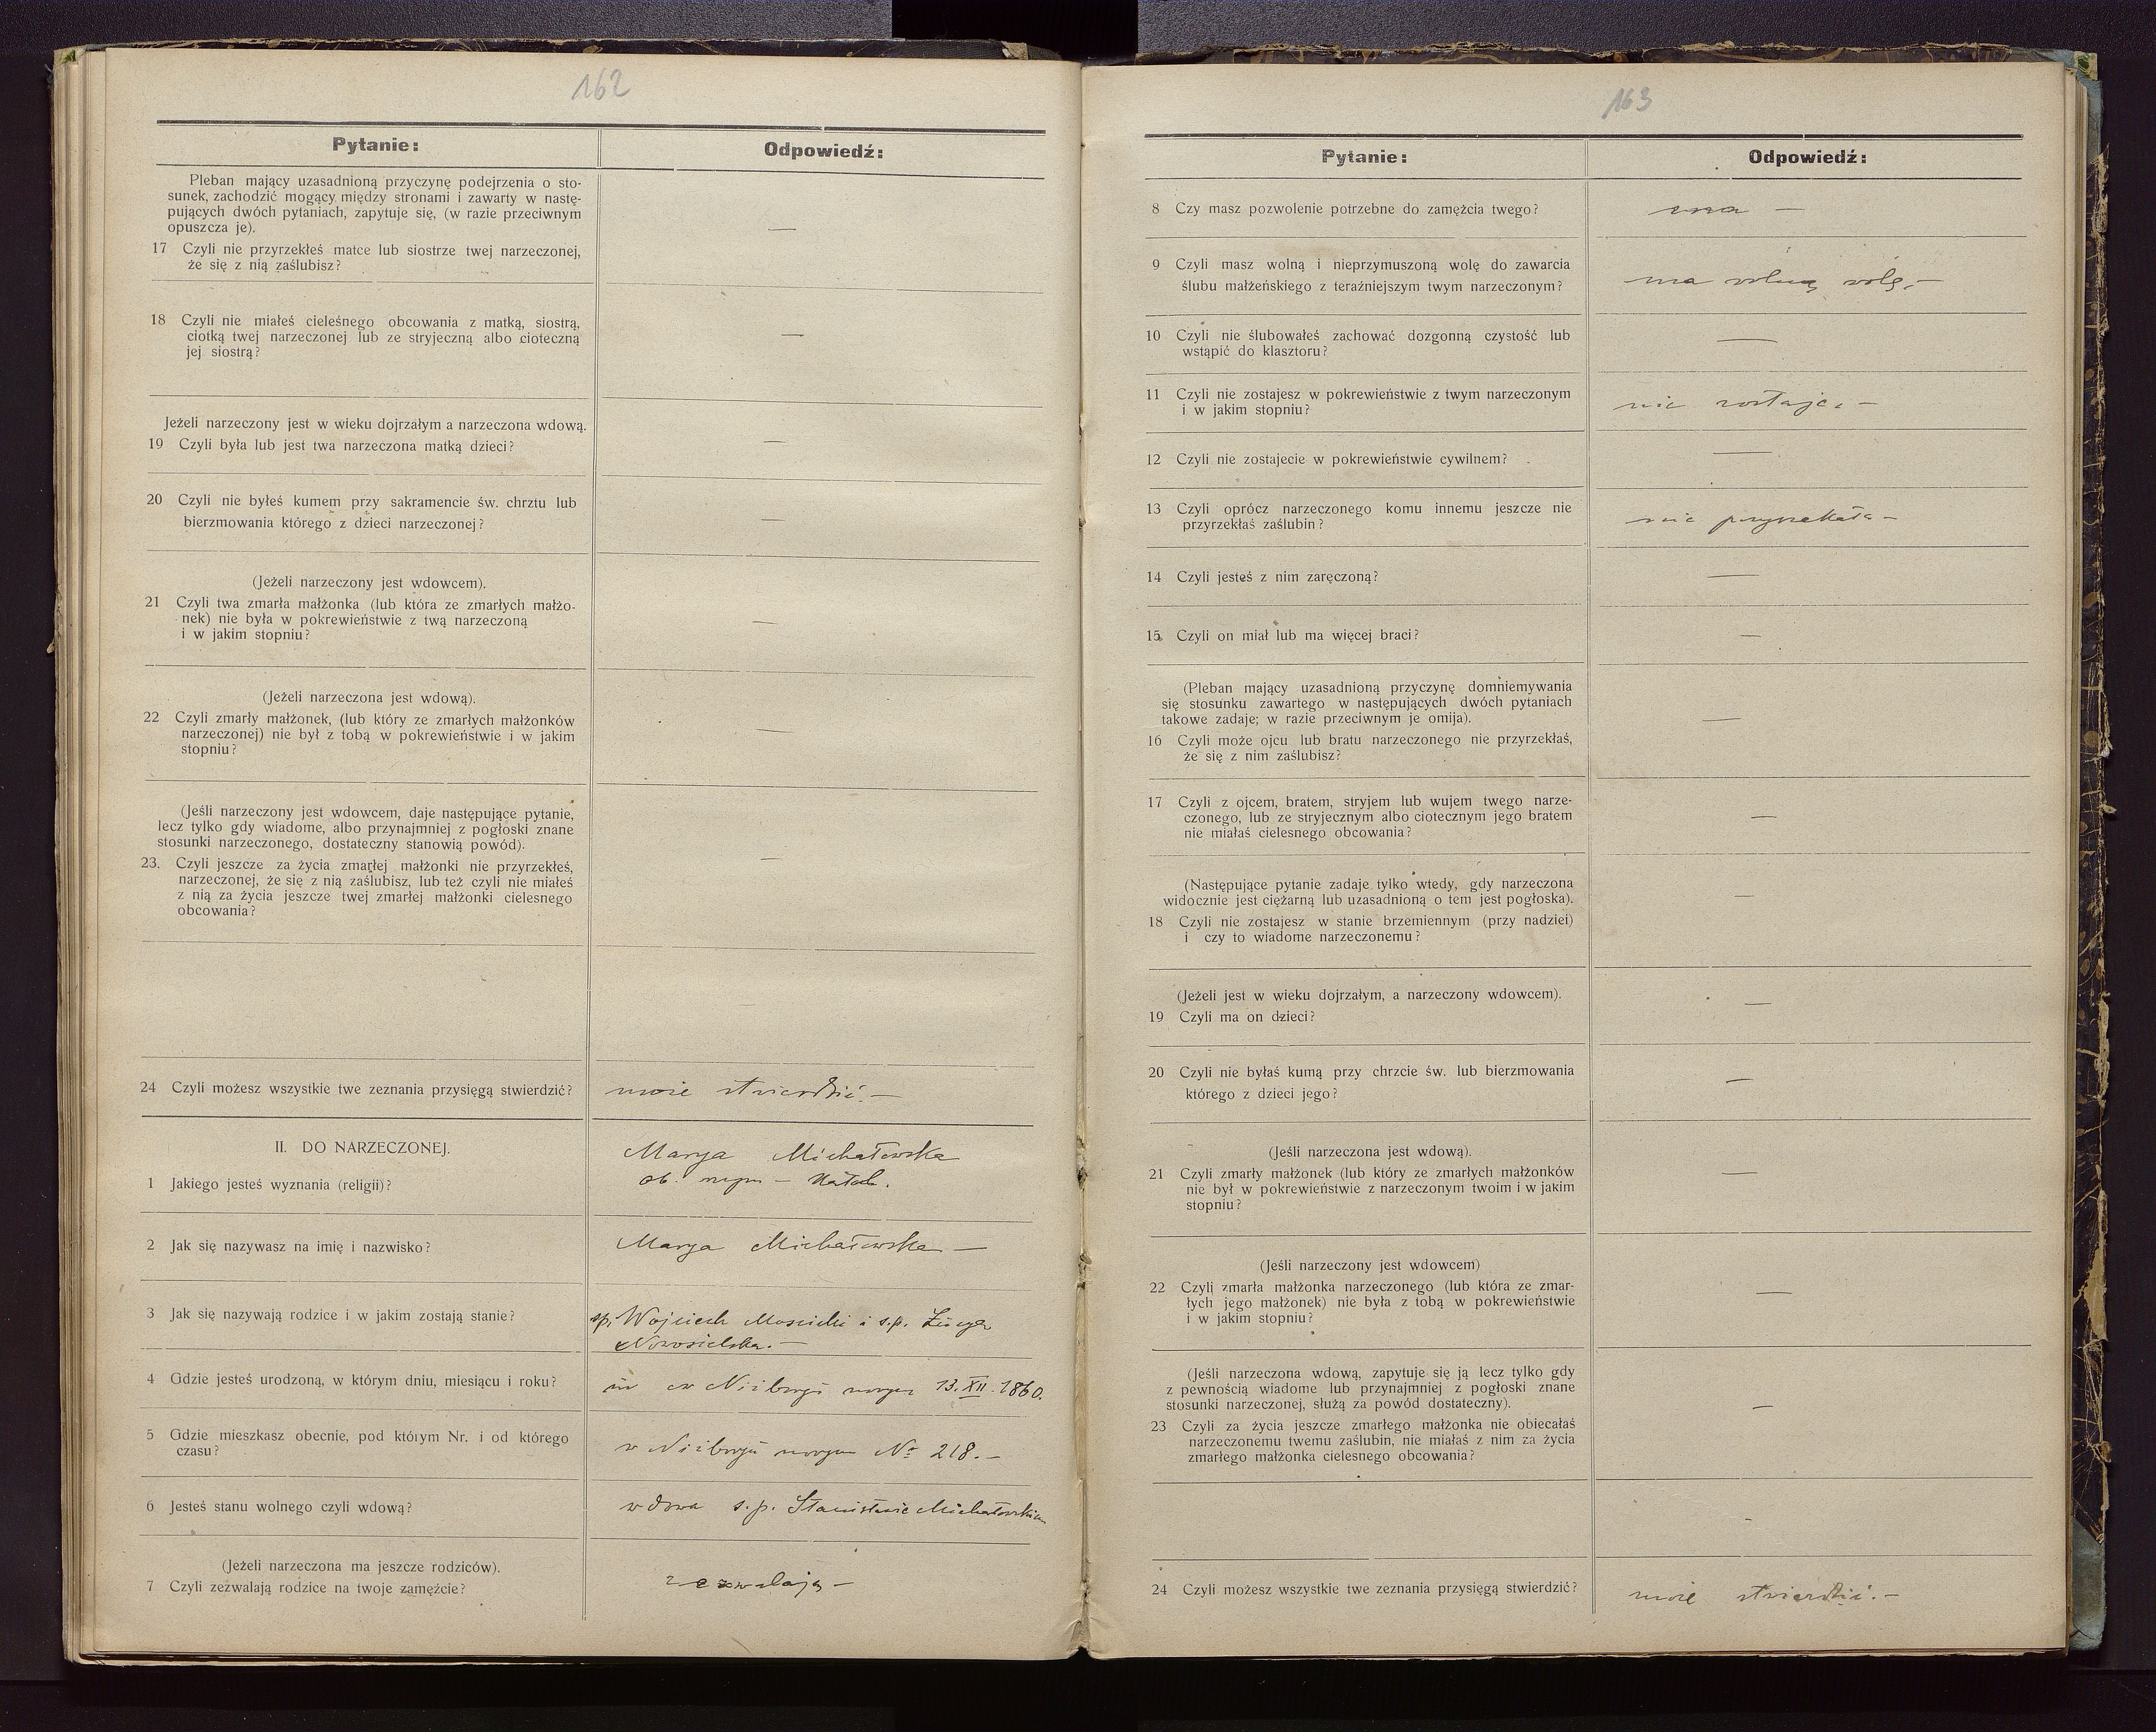 162
Pytanie:
Odpowiedź:
Pleban mający uzasadnioną przyczynę podejrzenia o sto-
sunek, zachodzić mogący między stronami i zawarty w nastę-
pujących dwóch pytaniach, zapytuje się, (w razie przeciwnym
opuszcza je).
—
17 Czyli nie przyrzekłeś matce lub siostrze twej narzeczonej,
że się z nią zaślubisz?
18 Czyli nie miałeś cieleśnego obcowania z matką, siostrą,
ciotką twej narzeczonej lub ze stryjeczną albo cioteczną
jej siostrą?
—
Jeżeli narzeczony jest w wieku dojrzałym a narzeczona wdową.
19 Czyli była lub jest twa narzeczona matką dzieci?
—
20 Czyli nie byłeś kumem przy sakramencie św. chrztu lub
bierzmowania którego z dzieci narzeczonej?
—
(Jeżeli narzeczony jest wdowcem).
21 Czyli twa zmarła małżonka (lub która ze zmarłych małżo-
nek) nie była w pokrewieństwie z twą narzeczoną
i w jakim stopniu?
—
(Jeżeli narzeczona jest wdową).
22 Czyli zmarły małżonek, (lub który ze zmarłych małżonków
narzeczonej) nie był z tobą w pokrewieństwie i w jakim
stopniu?
—
(Jeśli narzeczony jest wdowcem, daje następujące pytanie,
lecz tylko gdy wiadome, albo przynajmniej z pogłoski znane
stosunki narzeczonego, dostateczny stanowią powód).
23. Czyli jeszcze za życia zmarłej małżonki nie przyrzekłeś,
narzeczonej, że się z nią zaślubisz, lub też czyli nie miałeś
z nią za życia jeszcze twej zmarłej małżonki cielesnego
obcowania?
—
24 Czyli możesz wszystkie twe zeznania przysięgą stwierdzić?
może stwierdzić. —
II. DO NARZECZONEJ.
Marya Michałowska
1 Jakiego jesteś wyznania (religii)?
ob. rzym — Katol.
2 Jak się nazywasz na imię i nazwisko?
Marya Michałowska —
3 Jak się nazywają rodzice i w jakim zostają stanie?
sp. Wojciech Mościcki i s.p. Łucya
Nowosielska. —
4 Gdzie jesteś urodzoną, w którym dniu, miesiącu i roku?
w Niżborgu nowym 13. XII. 1860.
5 Gdzie mieszkasz obecnie, pod którym Nr. i od którego
czasu?
w Niżborgu nowym No 218. —
6 Jesteś stanu wolnego czyli wdową?
wdowa s.p. Stanisławie Michałowskim
(Jeżeli narzeczona ma jeszcze rodziców).
7 Czyli zezwalają rodzice na twoje zamężcie?
zezwalają —
163
Pytanie:
Odpowiedź:
8 Czy masz pozwolenie potrzebne do zamężcia twego?
ma —
9 Czyli masz wolną i nieprzymuszoną wolę do zawarcia
ślubu małżeńskiego z teraźniejszym twym narzeczonym?
ma wolną wolę. —
10 Czyli nie ślubowałeś zachować dozgonną czystość lub
wstąpić do klasztoru?
—
11 Czyli nie zostajesz w pokrewieństwie z twym narzeczonym
i w jakim stopniu?
nie zostaje. —
12 Czyli nie zostajecie w pokrewieństwie cywilnem?
—
13 Czyli oprócz narzeczonego komu innemu jeszcze nie
przyrzekłaś zaślubin?
nie przyrzekała —
14 Czyli jesteś z nim zaręczoną?
—
15 Czyli on miał lub ma więcej braci?
—
(Pleban mający uzasadnioną przyczynę domniemywania
się stosunku zawartego w następujących dwóch pytaniach
takowe zadaje; w razie przeciwnym je omija).
—
16 Czyli może ojcu lub bratu narzeczonego nie przyrzekłaś,
że się z nim zaślubisz?
17 Czyli z ojcem, bratem, stryjem lub wujem twego narze-
czonego, lub ze stryjecznym albo ciotecznym jego bratem
nie miałaś cielesnego obcowania?
—
(Następujące pytanie zadaje tylko wtedy, gdy narzeczona
widocznie jest ciężarną lub uzasadnioną o tem jest pogłoska).
—
18 Czyli nie zostajesz w stanie brzemiennym (przy nadziei)
i czy to wiadome narzeczonemu?
(Jeżeli jest w wieku dojrzałym, a narzeczony wdowcem).
—
19 Czyli ma on dzieci?
20 Czyli nie byłaś kumą przy chrzcie św. lub bierzmowania
którego z dzieci jego?
—
(Jeśli narzeczona jest wdową).
21 Czyli zmarły małżonek (lub który ze zmarłych małżonków
nie był w pokrewieństwie z narzeczonym twoim i w jakim
stopniu?
—
(Jeśli narzeczony jest wdowcem)
22 Czyli zmarła małżonka narzeczonego (lub która ze zmar-
łych jego małżonek) nie była z tobą w pokrewieństwie
i w jakim stopniu?
—
(Jeśli narzeczona wdową, zapytuje się ją lecz tylko gdy
z pewnością wiadome lub przynajmniej z pogłoski znane
stosunki narzeczonej, służą za powód dostateczny).
—
23 Czyli za życia jeszcze zmarłego małżonka nie obiecałaś
narzeczonemu twemu zaślubin, nie miałaś z nim za życia
zmarłego małżonka cielesnego obcowania?
24 Czyli możesz wszystkie twe zeznania przysięgą stwierdzić?
może stwierdzić. —